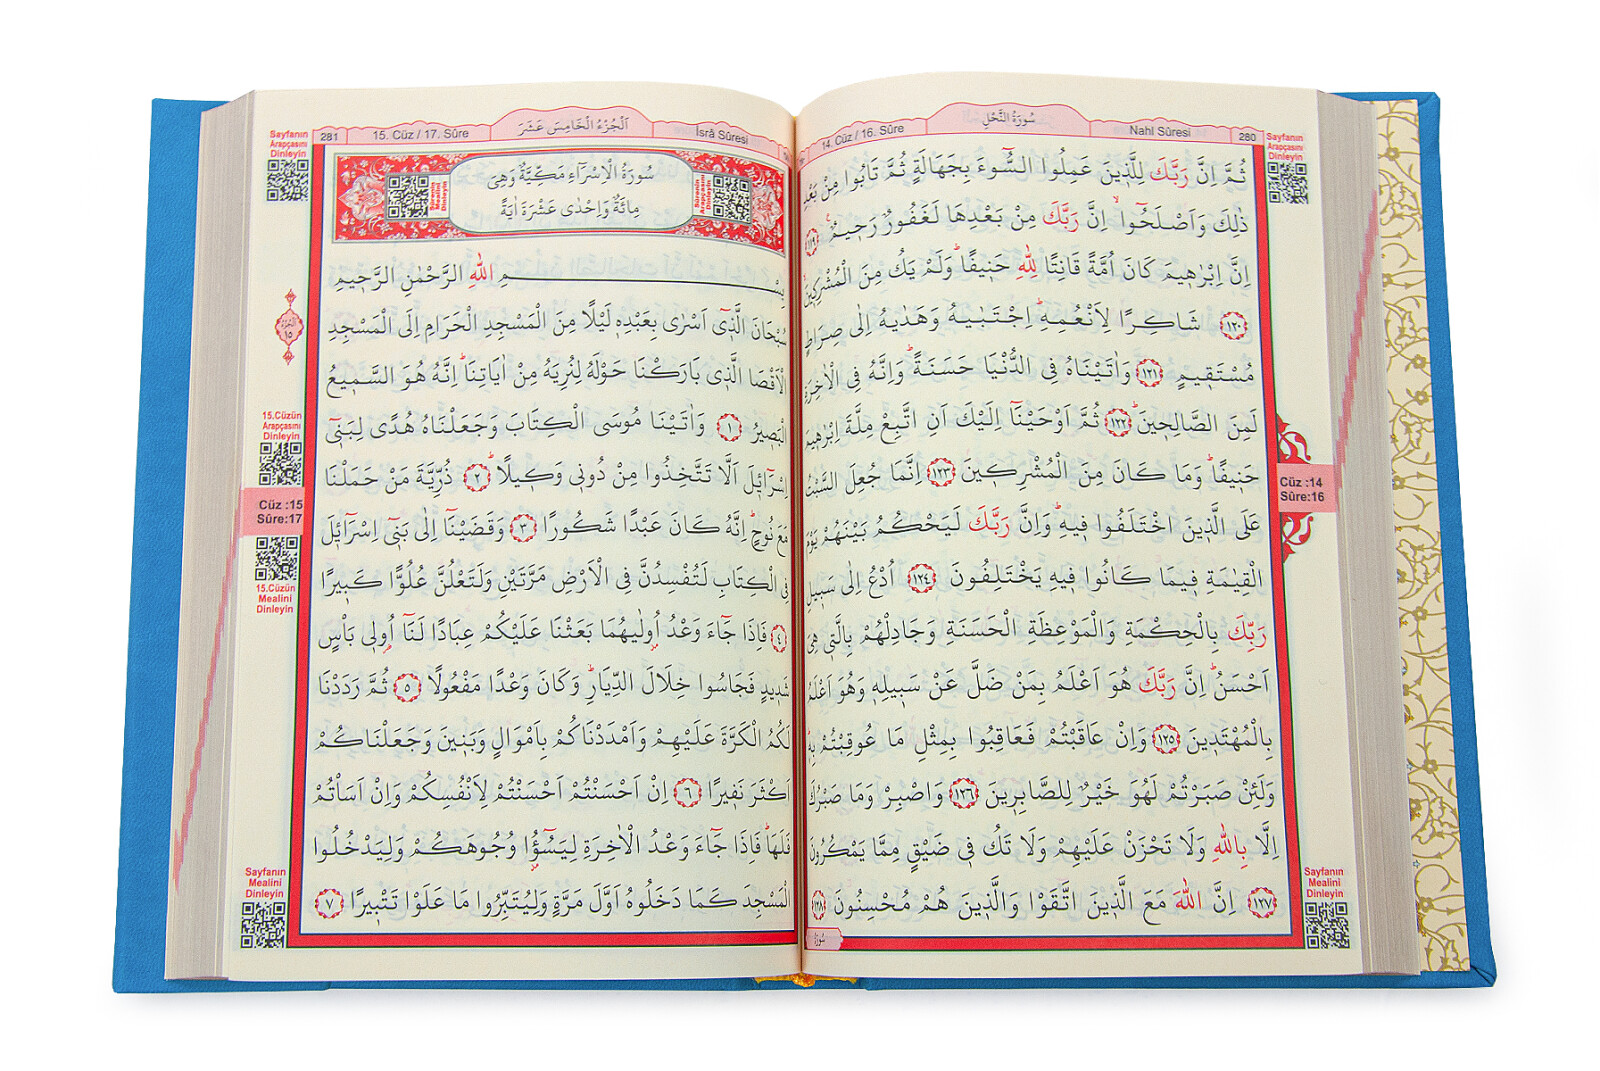 Sayfanın
Arapçasını
Dinleyin
280
Nahl Sûresi
سُورَةُ النَّحْلِ
14. Cüz / 16. Sûre
ثُمَّ اِنَّ رَبَّكَ لِلَّذ۪ينَ عَمِلُوا السُّٓوءَ بِجَهَالَةٍ ثُمَّ تَابُوا مِنْ بَعْدِ
ذٰلِكَ وَاَصْلَحُٓواۙ اِنَّ رَبَّكَ مِنْ بَعْدِهَا لَغَفُورٌ رَح۪يمٌ۟ ﴿١١٩﴾
اِنَّ اِبْرٰه۪يمَ كَانَ اُمَّةً قَانِتًا لِلّٰهِ حَن۪يفًاۜ وَلَمْ يَكُ مِنَ الْمُشْرِك۪ينَۙ
﴿١٢٠﴾ شَاكِرًا لِاَنْعُمِهِۜ اِجْتَبٰيهُ وَهَدٰيهُ اِلٰى صِرَاطٍ
مُسْتَق۪يمٍ ﴿١٢١﴾ وَاٰتَيْنَاهُ فِي الدُّنْيَا حَسَنَةًۜ وَاِنَّهُ فِي الْاٰخِرَةِ
لَمِنَ الصَّالِح۪ينَۜ ﴿١٢٢﴾ ثُمَّ اَوْحَيْنَٓا اِلَيْكَ اَنِ اتَّبِعْ مِلَّةَ اِبْرٰه۪يمَ
حَن۪يفًاۜ وَمَا كَانَ مِنَ الْمُشْرِك۪ينَ ﴿١٢٣﴾ اِنَّمَا جُعِلَ السَّبْتُ
عَلَى الَّذ۪ينَ اخْتَلَفُوا ف۪يهِۜ وَاِنَّ رَبَّكَ لَيَحْكُمُ بَيْنَهُمْ يَوْمَ
الْقِيٰمَةِ ف۪يمَا كَانُوا ف۪يهِ يَخْتَلِفُونَ ﴿١٢٤﴾ اُدْعُ اِلٰى سَب۪يلِ
رَبِّكَ بِالْحِكْمَةِ وَالْمَوْعِظَةِ الْحَسَنَةِ وَجَادِلْهُمْ بِالَّت۪ي هِيَ
اَحْسَنُۜ اِنَّ رَبَّكَ هُوَ اَعْلَمُ بِمَنْ ضَلَّ عَنْ سَب۪يلِه۪ وَهُوَ اَعْلَمُ
بِالْمُهْتَد۪ينَ ﴿١٢٥﴾ وَاِنْ عَاقَبْتُمْ فَعَاقِبُوا بِمِثْلِ مَا عُوقِبْتُمْ بِه۪ۜ
وَلَئِنْ صَبَرْتُمْ لَهُوَ خَيْرٌ لِلصَّابِر۪ينَ ﴿١٢٦﴾ وَاصْبِرْ وَمَا صَبْرُكَ
اِلَّا بِاللّٰهِ وَلَا تَحْزَنْ عَلَيْهِمْ وَلَا تَكُ ف۪ي ضَيْقٍ مِمَّا يَمْكُرُونَ
﴿١٢٧﴾ اِنَّ اللّٰهَ مَعَ الَّذ۪ينَ اتَّقَوْا وَالَّذ۪ينَ هُمْ مُحْسِنُونَ ﴿١٢٨﴾
سُورَةُ
Cüz :14
Sûre:16
Sayfanın
Mealini
Dinleyin
İsrâ Sûresi
اَلْجُزْءُ الْخَامِسَ عَشَرَ
15. Cüz / 17. Sûre
281
Sayfanın
Arapçasını
Dinleyin
Sûrenin
Arapçasını
Dinleyin
سُورَةُ الْاِسْرَٓاءِ مَكِّيَّةٌ وَهِيَ
مِائَةٌ وَاِحْدٰى عَشْرَةَ اٰيَةً
Sûrenin
Mealini
Dinleyin
بِسْمِ اللّٰهِ الرَّحْمٰنِ الرَّح۪يمِ
سُبْحَانَ الَّذ۪ٓي اَسْرٰى بِعَبْدِه۪ لَيْلًا مِنَ الْمَسْجِدِ الْحَرَامِ اِلَى الْمَسْجِدِ
الْاَقْصَا الَّذ۪ي بَارَكْنَا حَوْلَهُ لِنُرِيَهُ مِنْ اٰيَاتِنَاۜ اِنَّهُ هُوَ السَّم۪يعُ
الْبَص۪يرُ ﴿١﴾ وَاٰتَيْنَا مُوسَى الْكِتَابَ وَجَعَلْنَاهُ هُدًى لِبَن۪ٓي
اِسْرَٓائ۪لَ اَلَّا تَتَّخِذُوا مِنْ دُون۪ي وَك۪يلًاۜ ﴿٢﴾ ذُرِّيَّةَ مَنْ حَمَلْنَا
مَعَ نُوحٍۜ اِنَّهُ كَانَ عَبْدًا شَكُورًا ﴿٣﴾ وَقَضَيْنَٓا اِلٰى بَن۪ٓي اِسْرَٓائ۪لَ
فِي الْكِتَابِ لَتُفْسِدُنَّ فِي الْاَرْضِ مَرَّتَيْنِ وَلَتَعْلُنَّ عُلُوًّا كَب۪يرًا
﴿٤﴾ فَاِذَا جَٓاءَ وَعْدُ اُو۫لٰيهُمَا بَعَثْنَا عَلَيْكُمْ عِبَادًا لَنَٓا اُو۬ل۪ي بَأْسٍ
شَد۪يدٍ فَجَاسُوا خِلَالَ الدِّيَارِۜ وَكَانَ وَعْدًا مَفْعُولًا ﴿٥﴾ ثُمَّ رَدَدْنَا
لَكُمُ الْكَرَّةَ عَلَيْهِمْ وَاَمْدَدْنَاكُمْ بِاَمْوَالٍ وَبَن۪ينَ وَجَعَلْنَاكُمْ
اَكْثَرَ نَف۪يرًا ﴿٦﴾ اِنْ اَحْسَنْتُمْ اَحْسَنْتُمْ لِاَنْفُسِكُمْ وَاِنْ اَسَأْتُمْ
فَلَهَاۜ فَاِذَا جَٓاءَ وَعْدُ الْاٰخِرَةِ لِيَسُٓؤُ۫ا وُجُوهَكُمْ وَلِيَدْخُلُوا
الْمَسْجِدَ كَمَا دَخَلُوهُ اَوَّلَ مَرَّةٍ وَلِيُتَبِّرُوا مَا عَلَوْا تَتْب۪يرًا ﴿٧﴾
اَلْجُزْءُ
١٥
15.Cüzün
Arapçasını
Dinleyin
Cüz :15
Sûre:17
15.Cüzün
Mealini
Dinleyin
Sayfanın
Mealini
Dinleyin